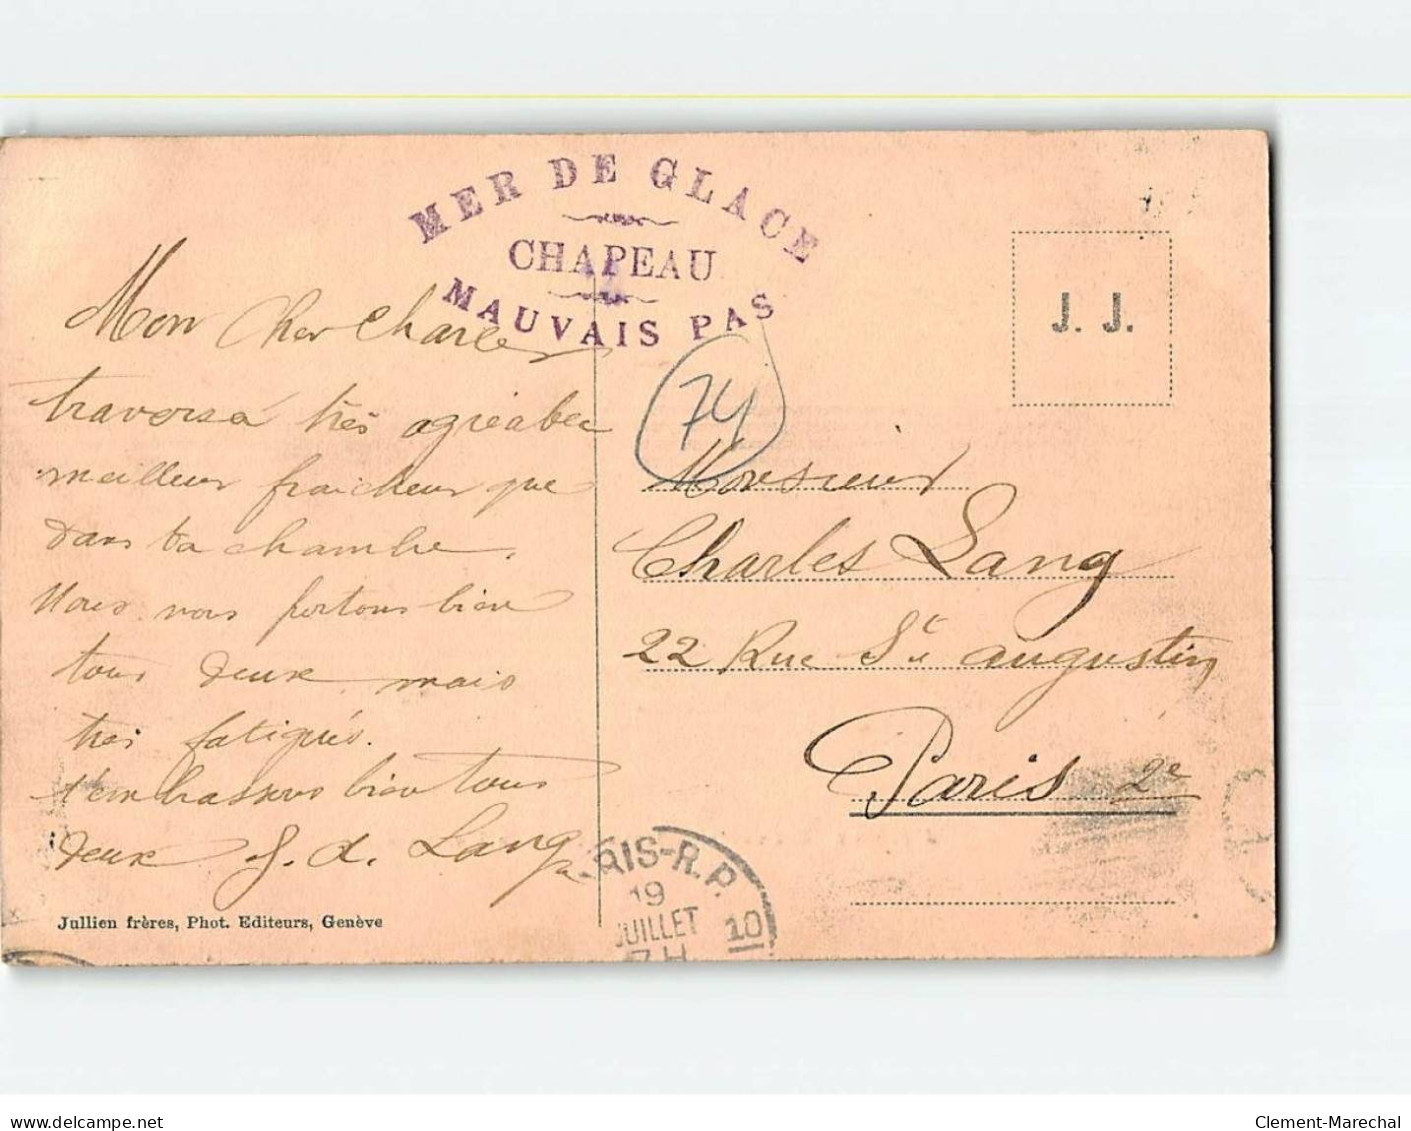 MER DE GLACE
CHAPEAU
MAUVAIS PAS
J. J.
74
Mon cher Charles
traversé très agréable
meilleur fraicheur que
dans ta chambre.
Nous nous portons bien
tous deux mais
très fatigués.
t'embrassons bien tous
deux J. A. Lang
Monsieur
Charles Lang
22 Rue St augustin
Paris 2e
Jullien frères, Phot. Editeurs, Genève
RIS-R.P.
19
JUILLET
10
7H
delcampe.net
Clement-Marechal